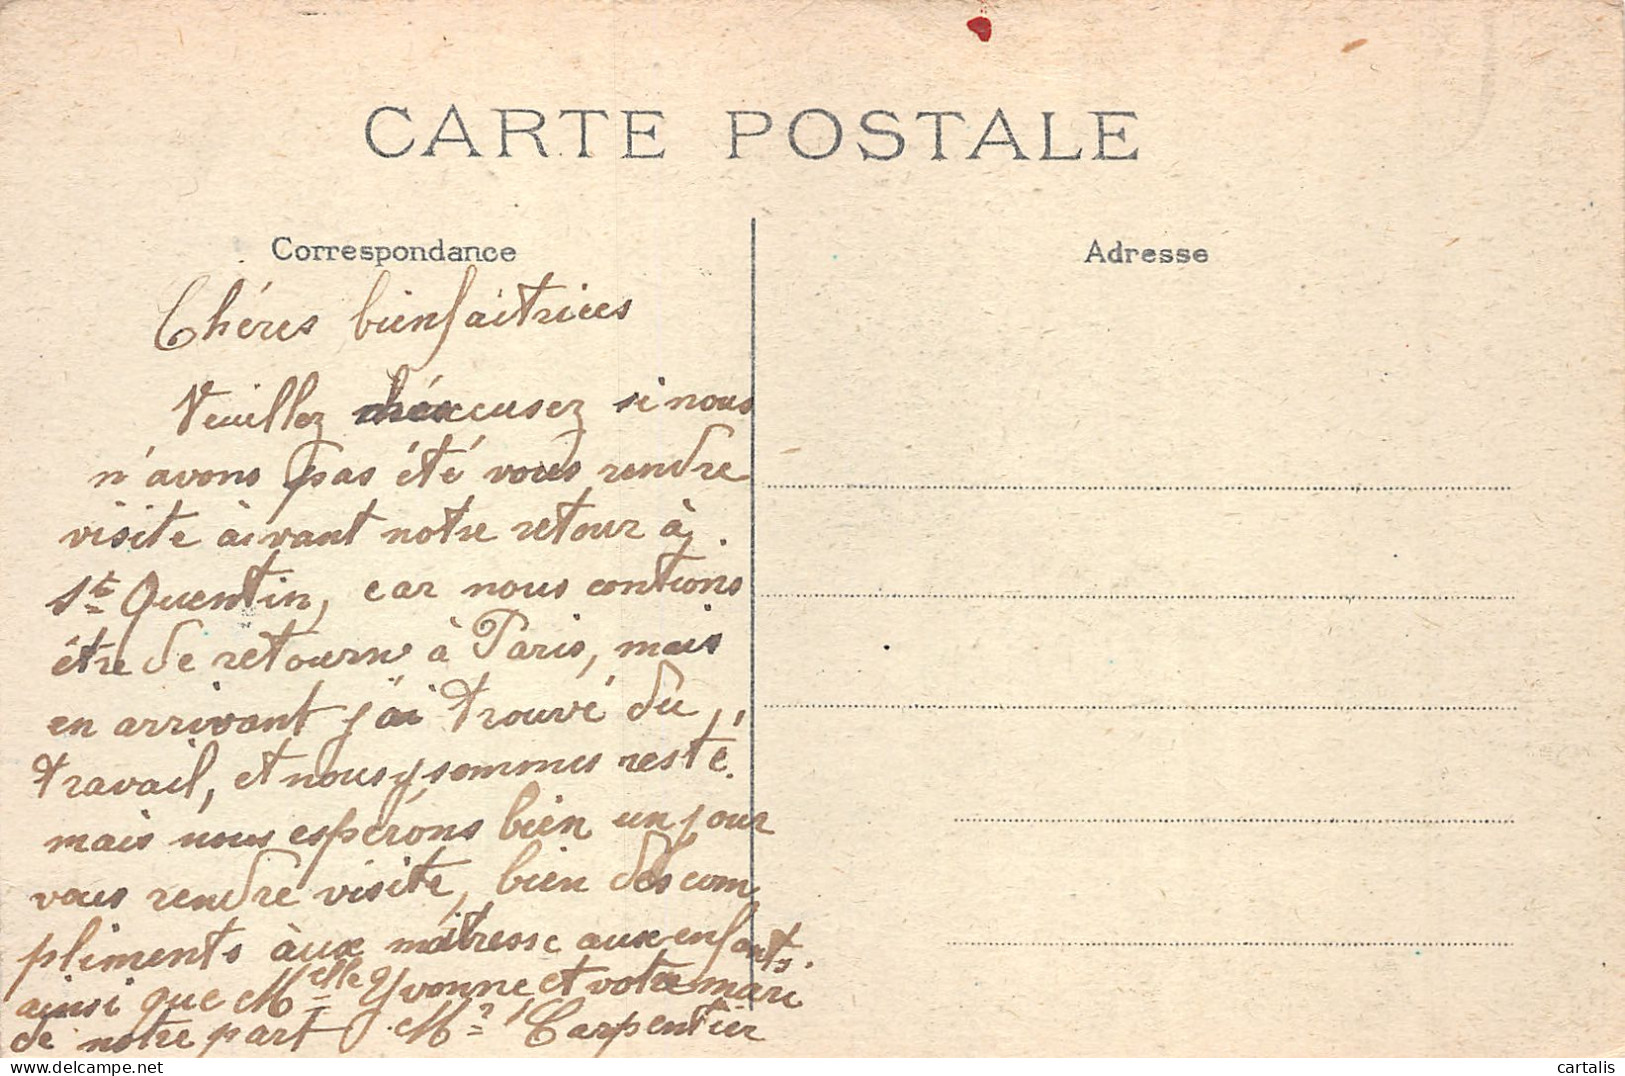 CARTE POSTALE
Correspondance
Adresse
Chéres bienfaitrices
Veuillez éxcusez si nous
n'avons pas été vous rendre
visite àvant notre retour à
St Quentin, car nous contions
être de retourn à Paris, mais
en arrivant j'ai trouvé du
travail, et nous y sommes resté.
mais nous espérons bien un jour
vous rendre visite, bien des com
pliments àux maitresse aux enfants.
ainsi que Melle Yvonne et votre mari
de notre part Mr Carpentier
delcampe.net
cartalis